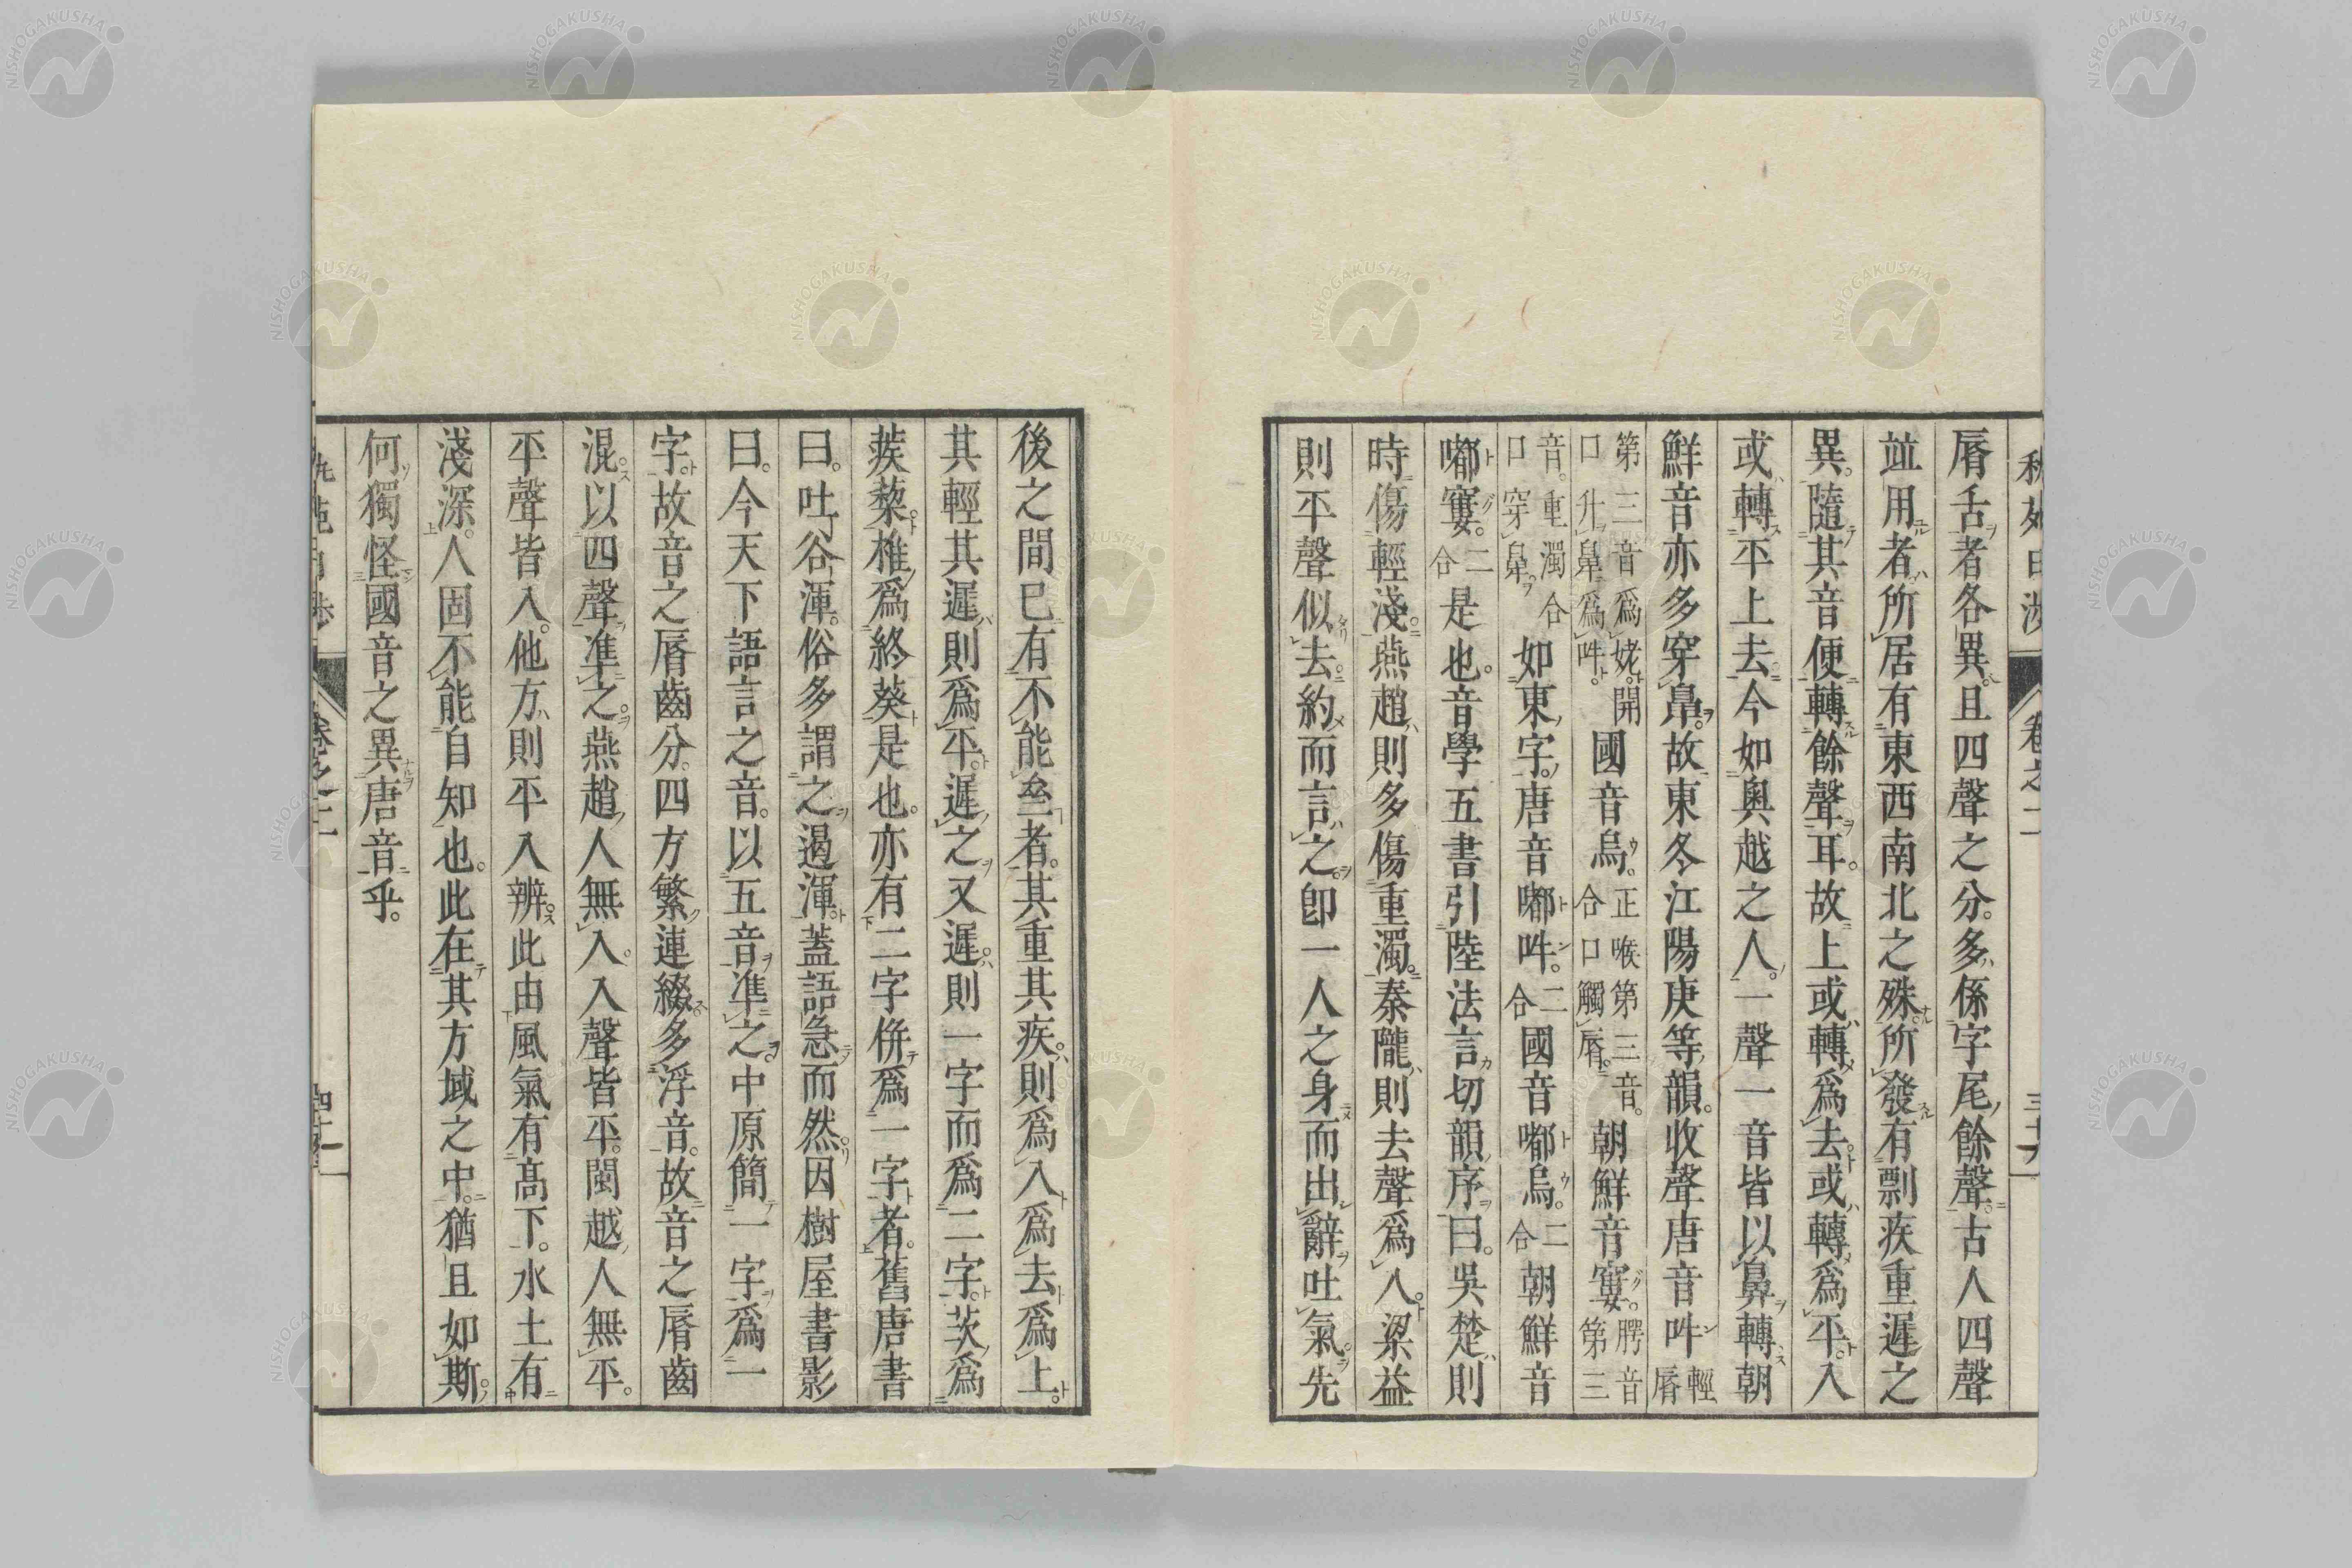 脣舌者各異且四聲之分。多係字尾餘聲。古人四聲
竝用者所居有東西南北之殊所發有剽疾重遲之
異。隨其音便轉餘聲耳。故上或轉爲去。或轉爲平。入
或轉平上去。今如奧越之人。一聲一音皆以鼻轉。朝
鮮音亦多穿鼻。故東冬江陽庚等韻。收聲唐音吽輕脣
第三音爲姥。開口升鼻爲吽。國音烏。正喉第三音。合口觸脣。朝鮮音寠。腭音第三
音。重濁合口穿鼻。如東字。唐音嘟吽。二合國音嘟烏。二合朝鮮音
嘟寠。二合是也。音學五書引陸法言切韻序曰。吳楚則
時傷輕淺。燕趙則多傷重濁。秦隴則去聲爲入。梁益
則平聲似去。約而言之。卽一人之身而出辭吐氣。先
後之間已有不能亝者。其重其疾。則爲入爲去爲上。
其輕其遲則爲平。遲之又遲。則一字而爲二字。茨爲
蒺藜椎爲終葵是也。亦有二字併爲一字者。舊唐書
曰。吐谷渾。俗多謂之退渾。蓋語急而然。因樹屋書影
曰。今天下語言之音。以五音準之。中原簡一字爲一
字。故音之脣齒分。四方繁連綴多浮音。故音之脣齒
混。以四聲準之。燕趙人無入。入聲皆平。閩越人無平。
平聲皆入。他方則平入辨。此由風氣有高下。水土有
淺深。人固不能自知也。此在其方域之中。猶且如斯。
何獨怪國音之異唐音乎。
卷之二